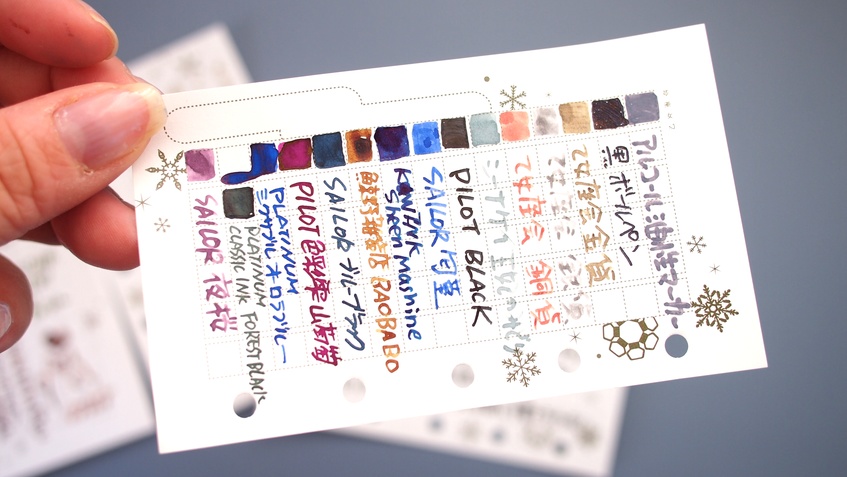 SAILOR 夜桜
PLATINUM
CLASSIC INK FOREST BLACK
PLATINUM
ミクサブル オーロラブルー
PILOT 色彩雫 山葡萄
SAILOR ブルーブラック
BAOBABO
KWZ INK
Sheen Mashine
SAILOR
PILOT BLACK
乙女座会 銅貨
乙女座会
乙女座会 金貨
黒ボールペン
アルコール油性マーカー